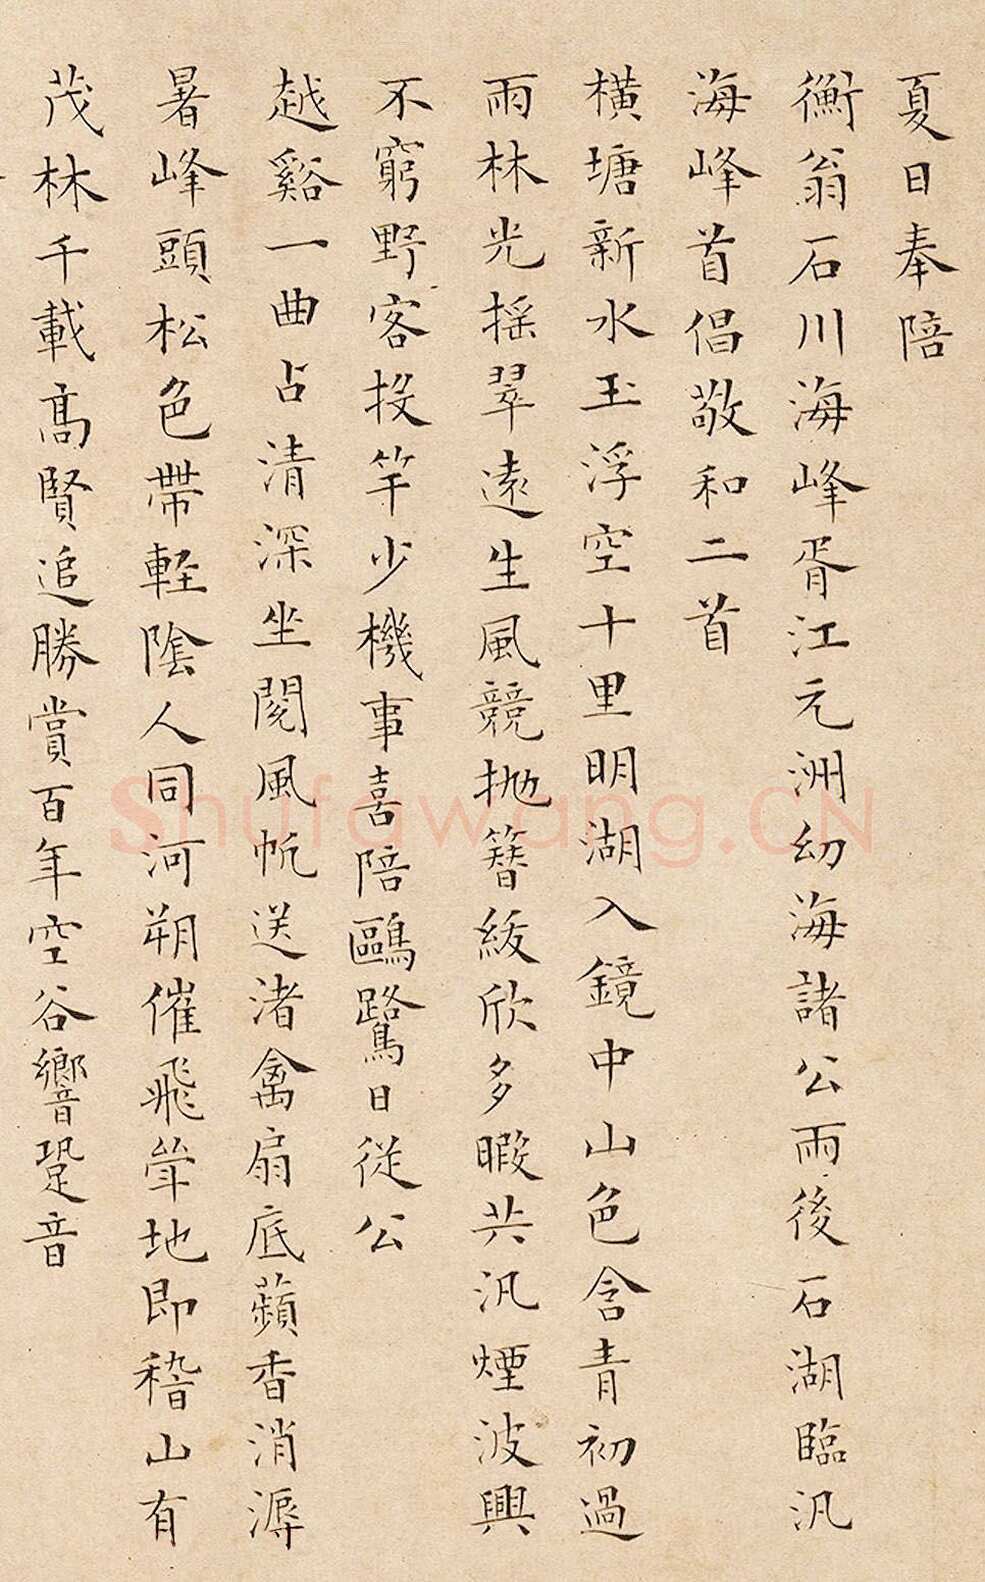 夏日奉陪
衡翁石川海峰胥江元洲幼海諸公雨後石湖臨汎
海峰首倡敬和二首
橫塘新水玉浮空十里明湖入鏡中山色含青初過
雨林光搖翠遠生風競拋簪紱欣多暇共汎煙波興
不窮野客投竿少機事喜陪鷗鷺日從公
越谿一曲占清深坐閱風帆送渚禽扇底蘋香消溽
暑峰頭松色帶輕陰人同河朔催飛斝地即稽山有
茂林千載高賢追勝賞百年空谷響跫音
Shufawang.CN